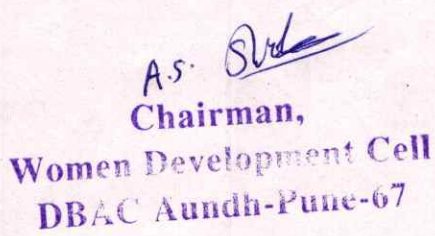 A.S.
Chairman,
Women Development Cell
DBAC Aundh-Pune-67